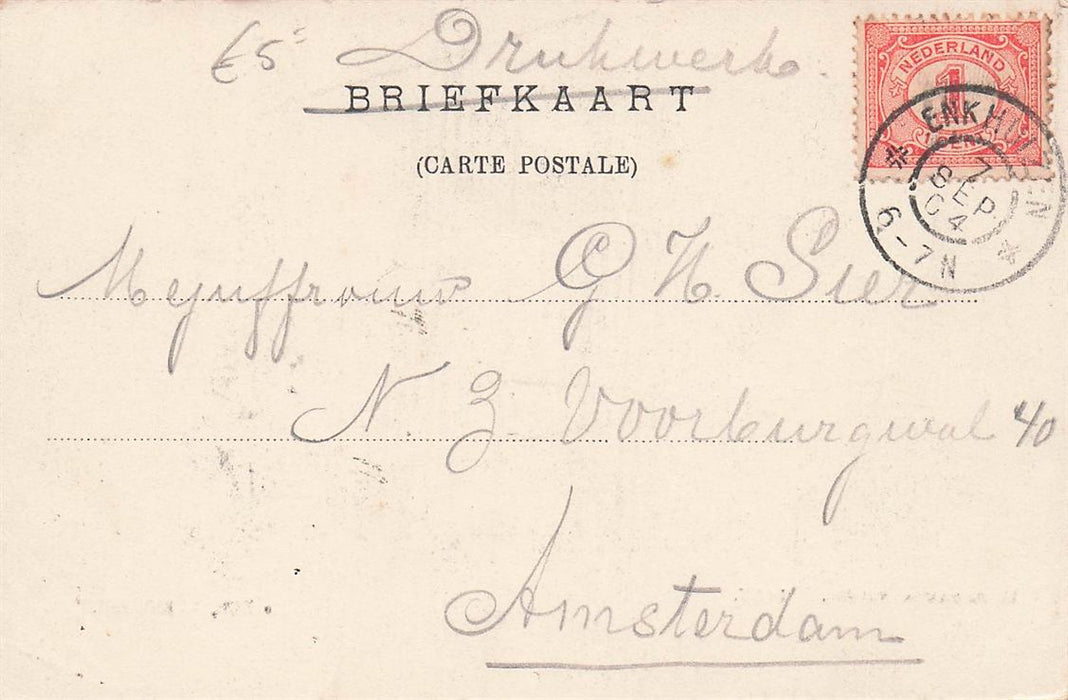 €5= Drukwerk.
BRIEFKAART
(CARTE POSTALE)
NEDERLAND
1
1 CENT
ENKHUIZEN
7 SEP 04
6-7N
Mejuffrouw G H. Sier
N. Z. Voorburgwal 40
Amsterdam